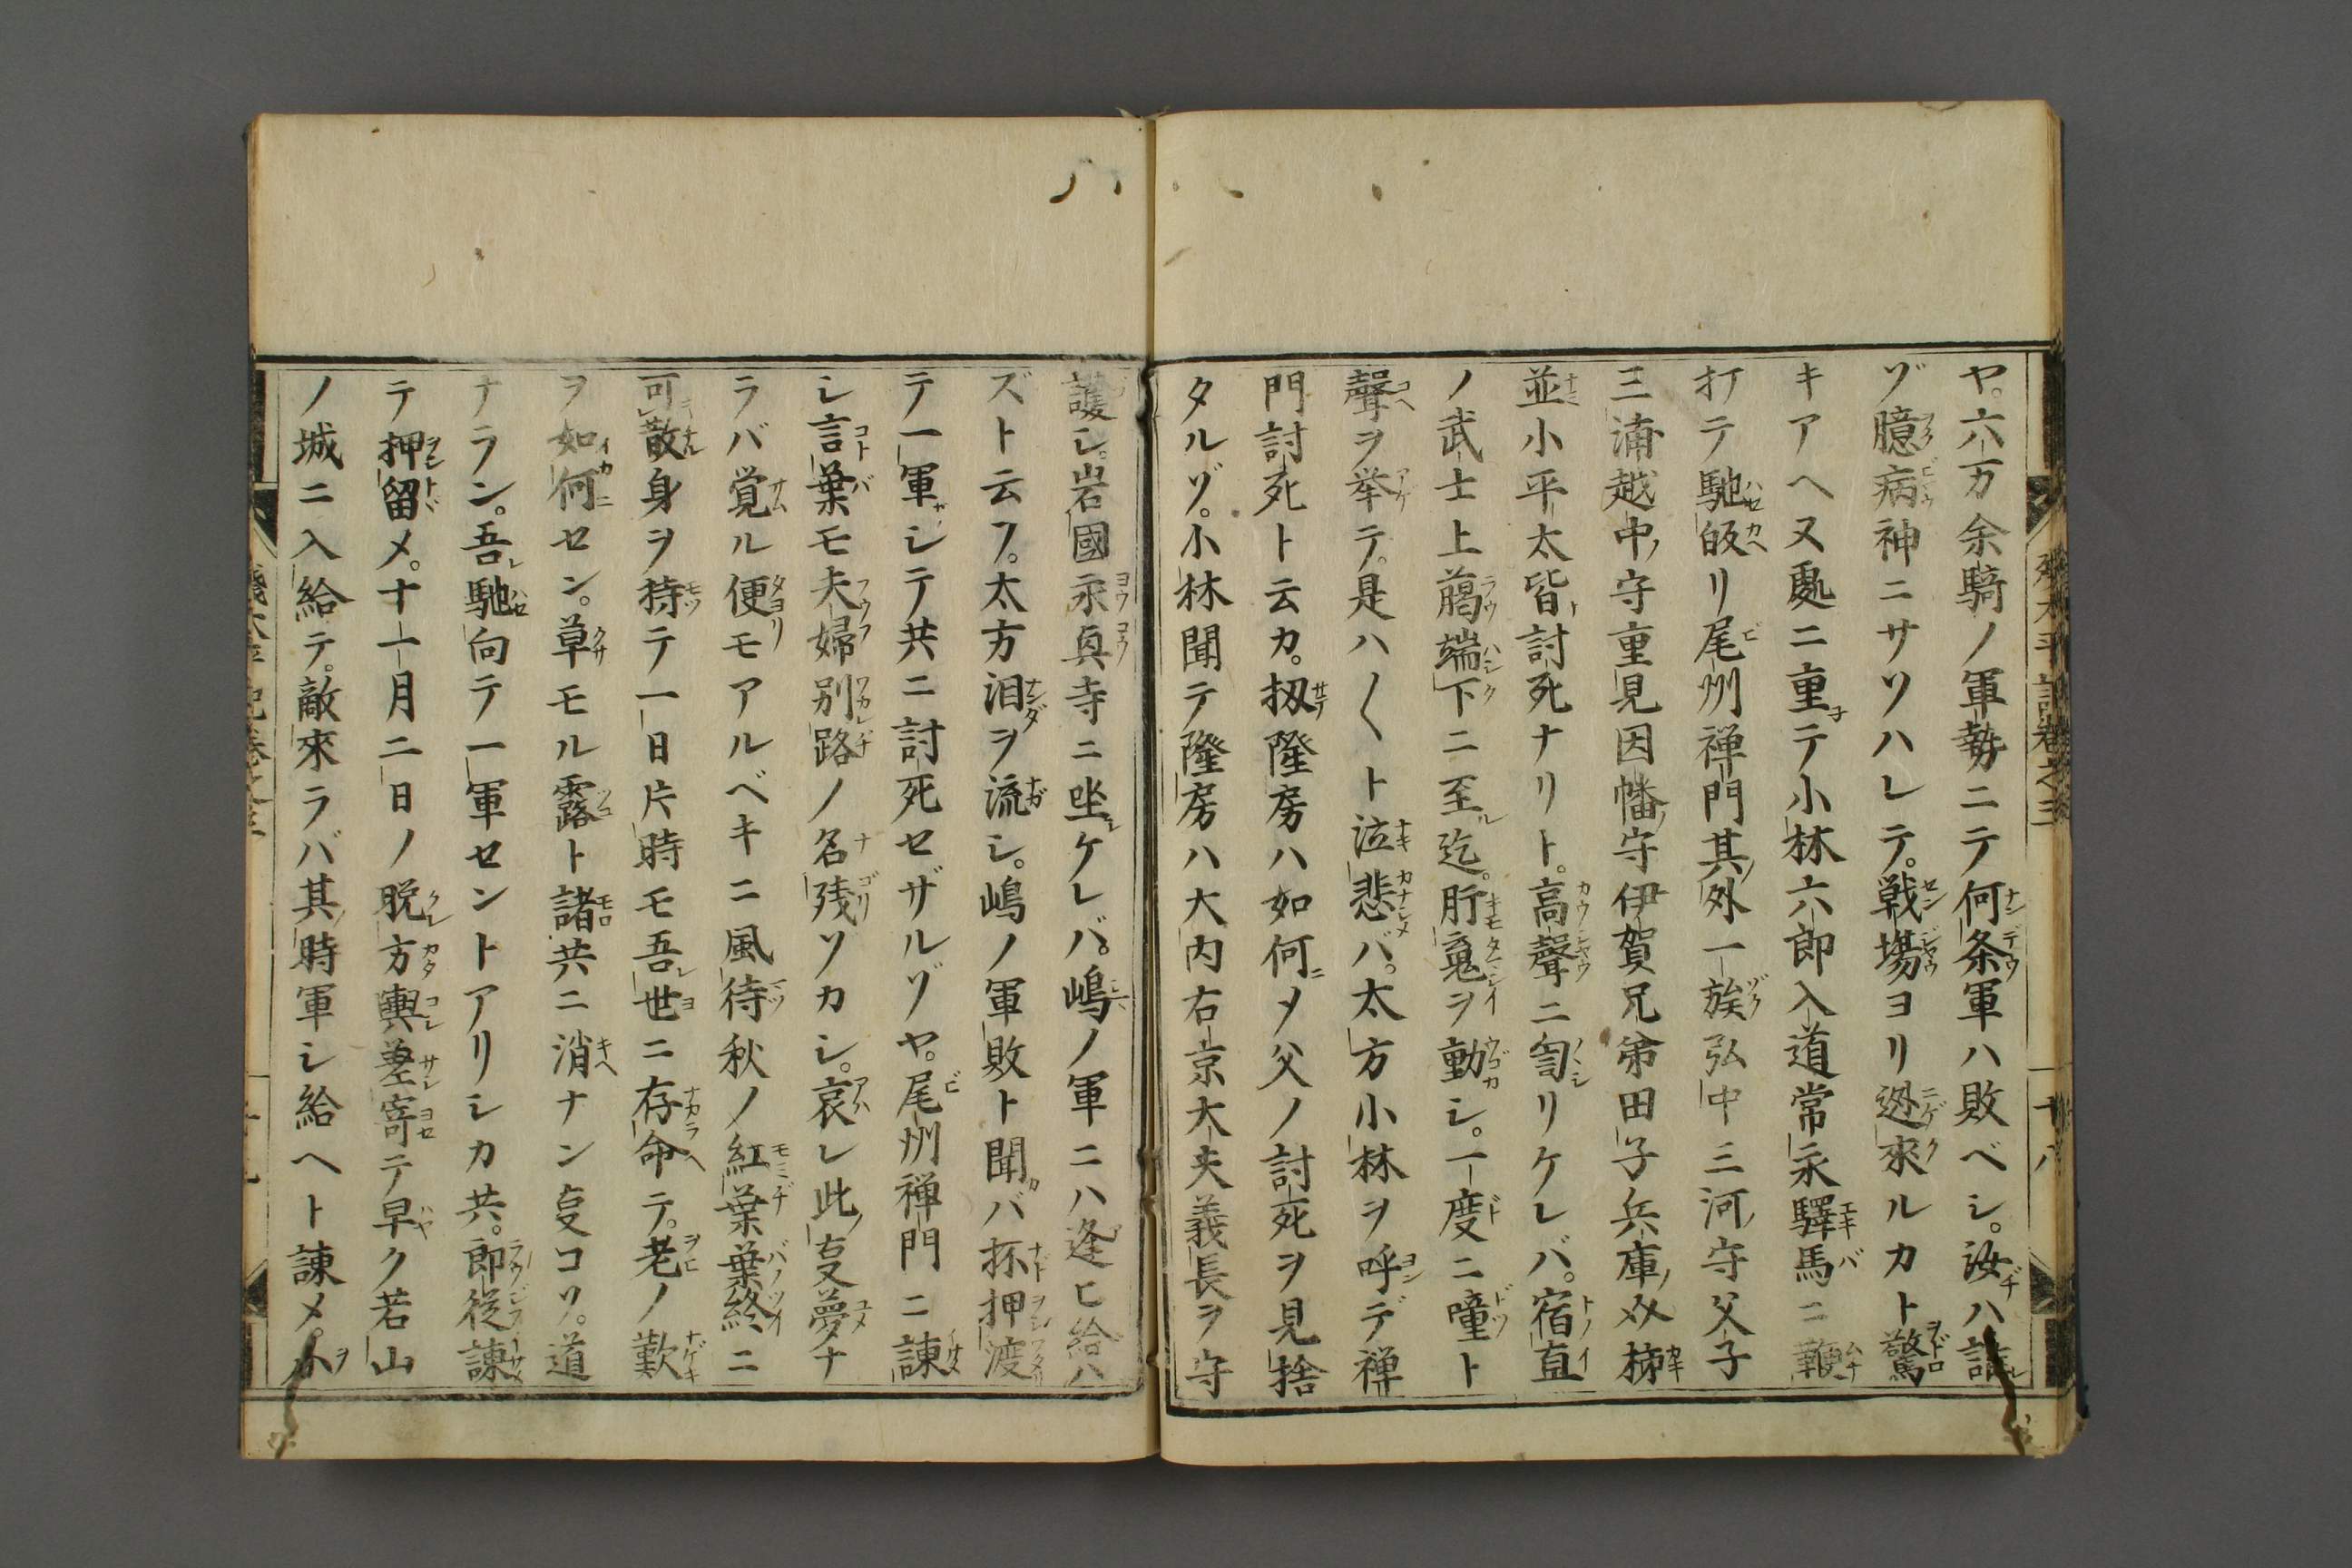 ヤ。六万余騎ノ軍勢ニテ何条軍ハ敗ベシ。汝ハ誰
ゾ臆病神ニサソハレテ。戦場ヨリ迯來ルカト驚
キアヘヌ處ニ重テ小林六郎入道常永驛馬ニ鞭
打テ馳皈リ尾州禅門其外一族弘中三河守父子
三浦越中守重見因幡守伊賀兄弟田子兵庫叅柿
並小平太皆討死ナリト。高聲ニ訇リケレバ。宿直
ノ武士上﨟端下ニ至迄。肝䰟ヲ動シ。一度ニ噇ト
聲ヲ挙テ。是ハ〱ト泣悲バ。太方小林ヲ呼デ禅
門討死ト云カ。扨隆房ハ如何ニメ父ノ討死ヲ見捨
タルゾ。小林聞テ隆房ハ大内右京大夫義長ヲ守
護シ。岩國永眞寺ニ坐ケレバ。嶋ノ軍ニハ逢ヒ給ハ
ズト云フ。太方泪ヲ流シ。嶋ノ軍敗ト聞バ抔押渡
テ一軍シテ共ニ討死セザルゾヤ。尾州禅門ニ諌
シ言葉モ夫婦別路ノ名残ソカシ。哀レ此㕝夢ナ
ラバ覚ル便モアルベキニ風待秋ノ紅葉葉終ニ
可散身ヲ持テ一日片時モ吾世ニ存命テ。老ノ歎
ヲ如何セン。草モル露ト諸共ニ消ナン㕝コソ。道
ナラン。吾馳向テ一軍セントアリシカ共。郎從諌
テ押留メ。十一月二日ノ脱方輿差寄テ早ク若山
ノ城ニ入給テ。敵來ラバ其時軍シ給ヘト諌メ。小